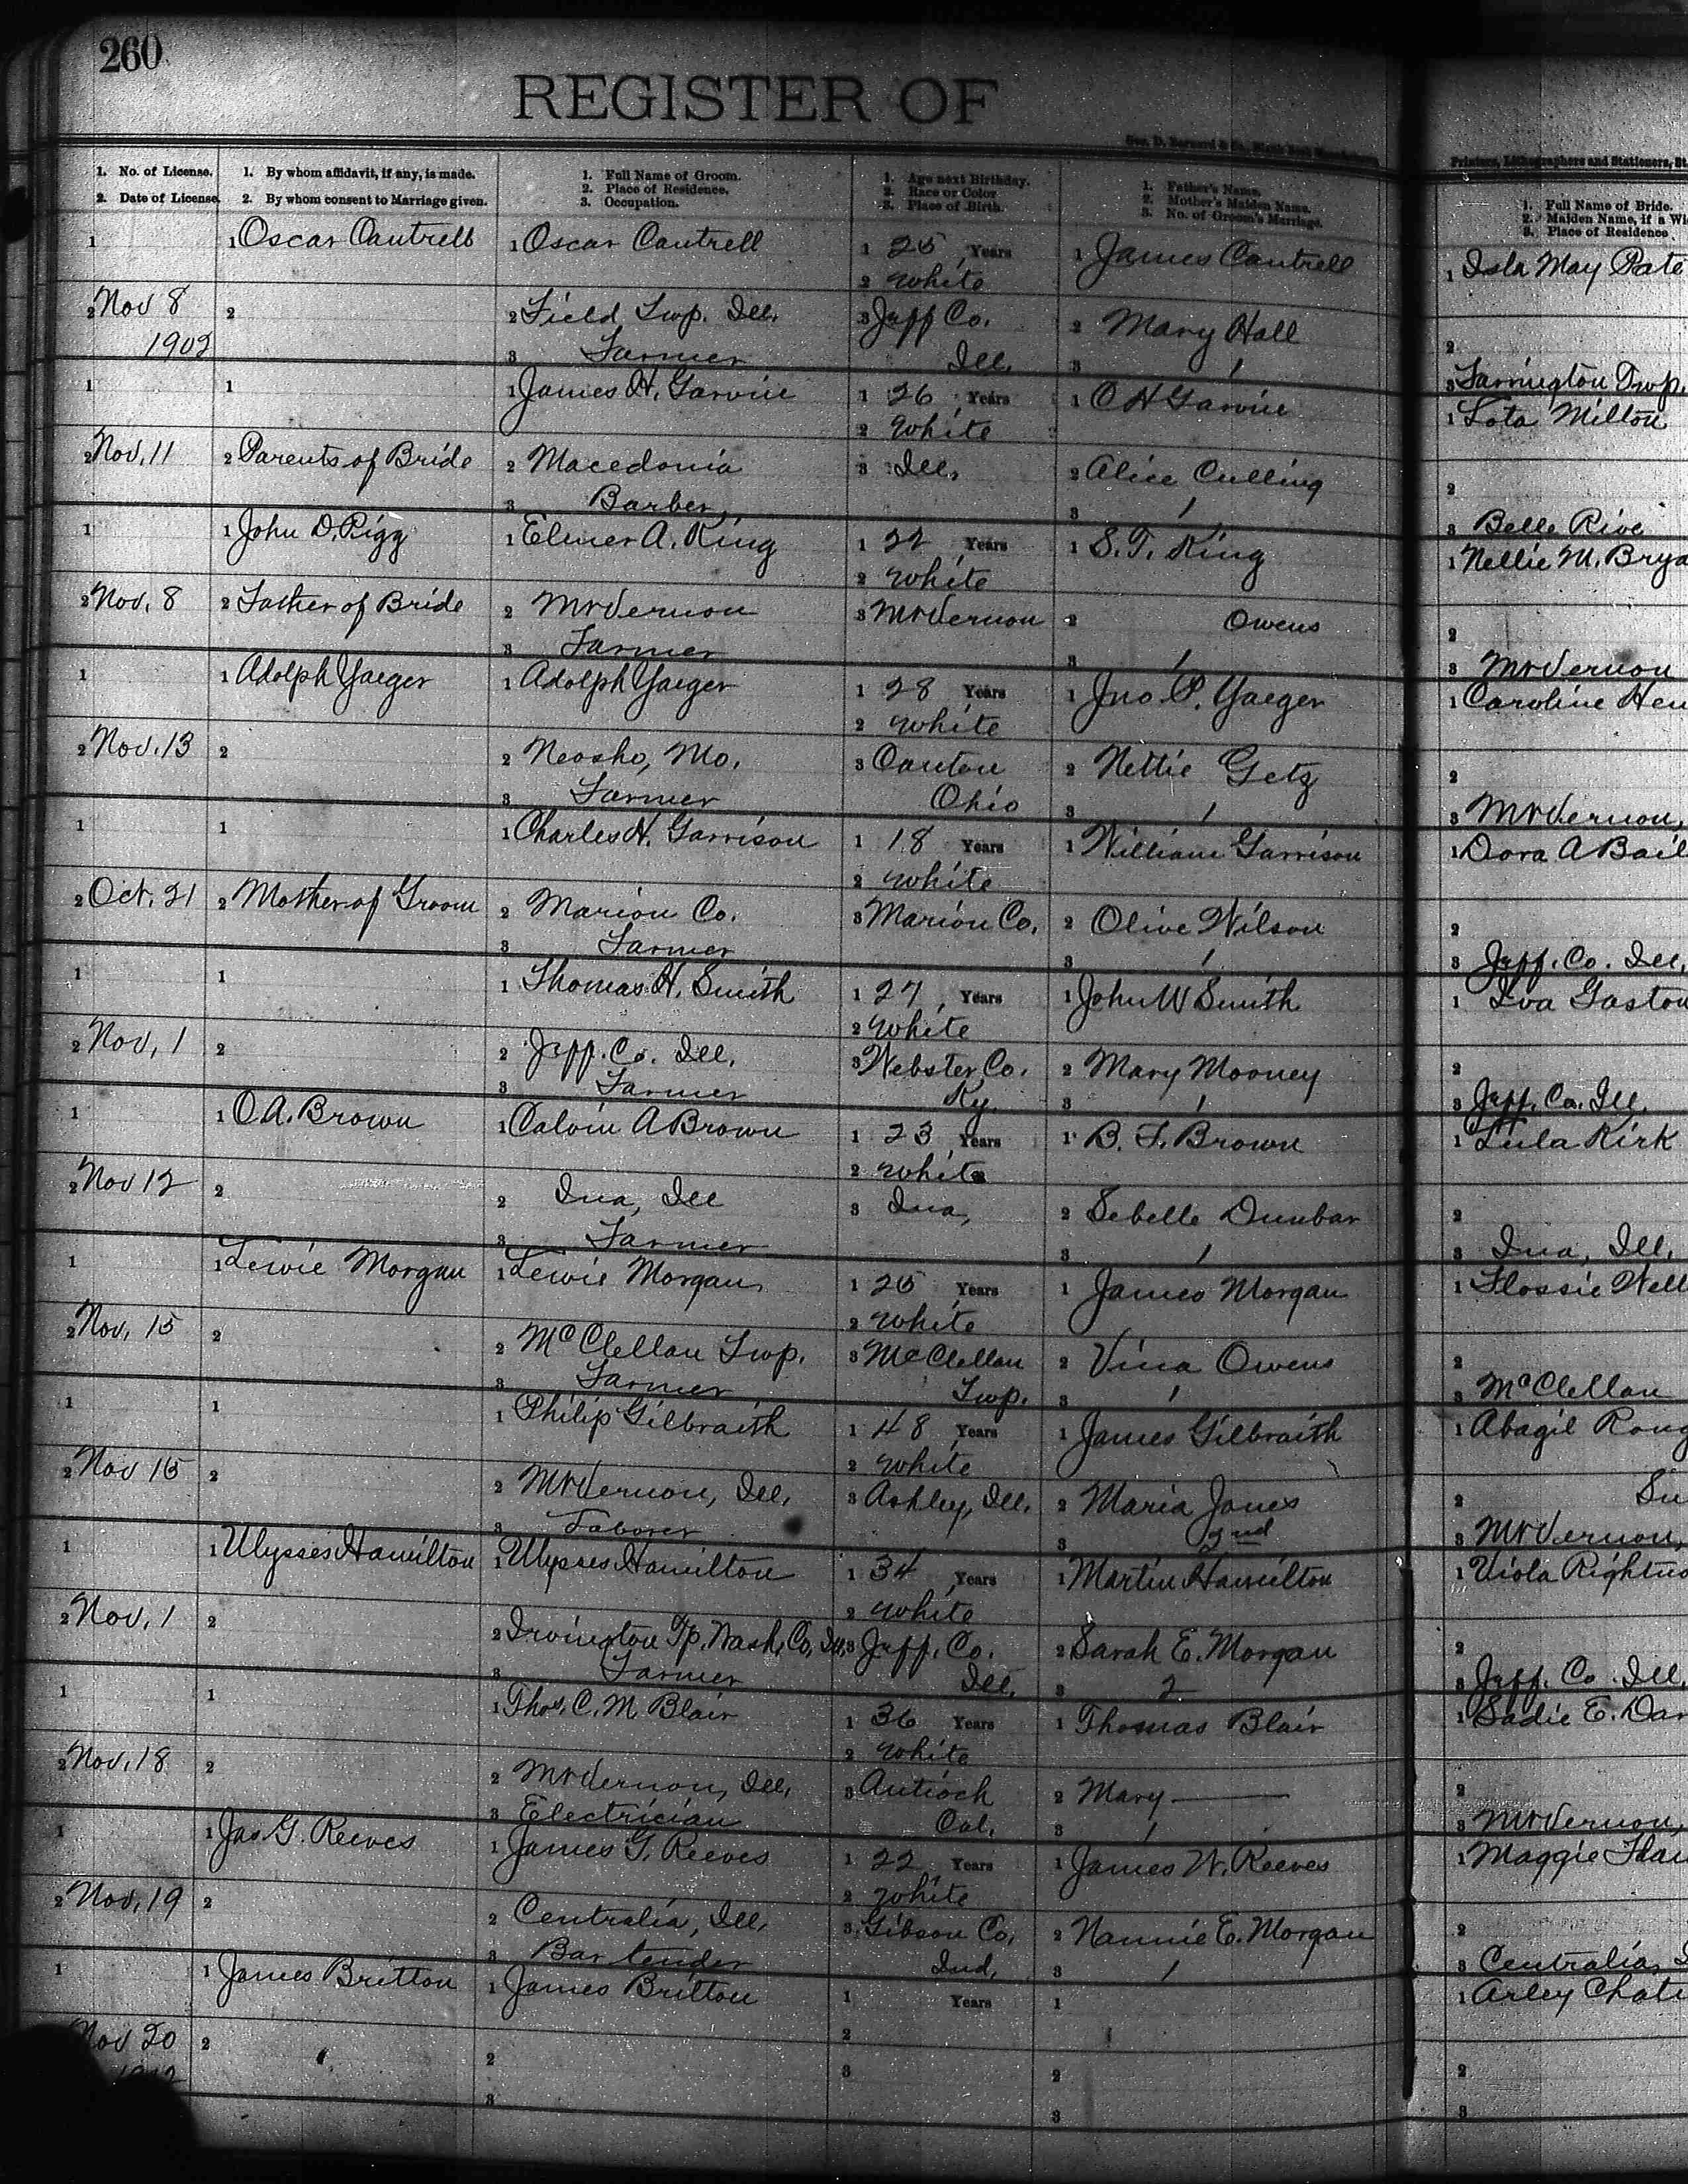 260
REGISTER OF
Geo. D. Barnard & Co.
Printers, Lithographers and Stationers, St.
1. No. of License.
2. Date of License.
1. By whom affidavit, if any, is made.
2. By whom consent to Marriage given.
1. Full Name of Groom.
2. Place of Residence.
3. Occupation.
1. Age next Birthday.
2. Race or Color.
3. Place of Birth.
1. Father's Name.
2. Mother's Maiden Name.
3. No. of Groom's Marriage.
1. Full Name of Bride.
2. Maiden Name, if a Wi
3. Place of Residence
1
2 Nov 8
1902
1 Oscar Cantrell
2
1 Oscar Cantrell
2 Field Twp. Ill.
3 Farmer
1 25 Years
2 White
3 Jeff Co.
Ill.
1 James Cantrell
2 Mary Hall
3 1
1 Isla May Pate
2
3 Farrington Twp.
1
2 Nov. 11
1
2 Parents of Bride
1 James H. Garvin
2 Macedonia
3 Barber
1 26 Years
2 White
3 Ill.
1 O H Garvin
2 Alice Culling
3 1
1 Lota Milton
2
3 Belle Rive
1
2 Nov. 8
1 John D. Rigg
2 Father of Bride
1 Elmer A. King
2 Mt Vernon
3 Farmer
1 22 Years
2 White
3 Mt Vernon
1 S. T. King
2 Owens
3 1
1 Nellie M. Brya
2
3 Mt Vernon
1
2 Nov. 13
1 Adolph Yaeger
2
1 Adolph Yaeger
2 Neosho, Mo.
3 Farmer
1 28 Years
2 White
3 Canton
Ohio
1 Jno. P. Yaeger
2 Nettie Getz
3 1
1 Caroline Hen
2
3 Mt Vernon,
1
2 Oct. 21
1
2 Mother of Groom
1 Charles H. Garrison
2 Marion Co.
3 Farmer
1 18 Years
2 White
3 Marion Co.
1 William Garrison
2 Olive Wilson
3 1
1 Dora A Bail
2
3 Jeff. Co. Ill.
1
2 Nov. 1
1
2
1 Thomas H. Smith
2 Jeff. Co. Ill.
3 Farmer
1 27 Years
2 White
3 Webster Co.
Ky.
1 John W Smith
2 Mary Mooney
3 1
1 Iva Gaston
2
3 Jeff. Co. Ill.
1
2 Nov 12
1 C. A. Brown
2
1 Calvin A Brown
2 Ina, Ill
3 Farmer
1 23 Years
2 White
3 Ina,
1 B. F. Brown
2 Sebelle Dunbar
3 1
1 Lula Kirk
2
3 Ina, Ill.
1
2 Nov. 15
1 Lewie Morgan
2
1 Lewie Morgan
2 McClellan Twp.
3 Farmer
1 25 Years
2 White
3 McClellan
Twp.
1 James Morgan
2 Vina Owens
3 1
1 Flossie Well
2
3 McClellan
1
2 Nov 15
1
2
1 Philip Gilbraith
2 Mt Vernon, Ill.
3 Laborer
1 48 Years
2 White
3 Ashley, Ill.
1 James Gilbraith
2 Maria Jones
3 2nd
1 Abagil Roug
2 Su
3 Mt Vernon,
1
2 Nov. 1
1 Ulysses Hamilton
2
1 Ulysses Hamilton
2 Irvington Tp. Wash. Co, Ill.
3 Farmer
1 34 Years
2 White
3 Jeff. Co.
Ill.
1 Martin Hamilton
2 Sarah E. Morgan
3 2
1 Viola Rightno
2
3 Jeff. Co. Ill.
1
2 Nov. 18
1
2
1 Thos. C. M. Blair
2 Mt Vernon, Ill.
3 Electrician
1 36 Years
2 White
3 Antioch
Cal.
1 Thomas Blair
2 Mary ———
3 1
1 Sadie E. Dar
2
3 Mt Vernon,
1
2 Nov. 19
1 Jas G. Reeves
2
1 James G. Reeves
2 Centralia, Ill.
3 Bar tender
1 22 Years
2 White
3 Gibson Co.
Ind.
1 James W. Reeves
2 Nannie E. Morgan
3 1
1 Maggie
2
3 Centralia,
1
Nov 20
1902
1 James Britton
2
1 James Britton
2
3
1 Years
2
3
1
2
3
1 Arley Chat
2
3